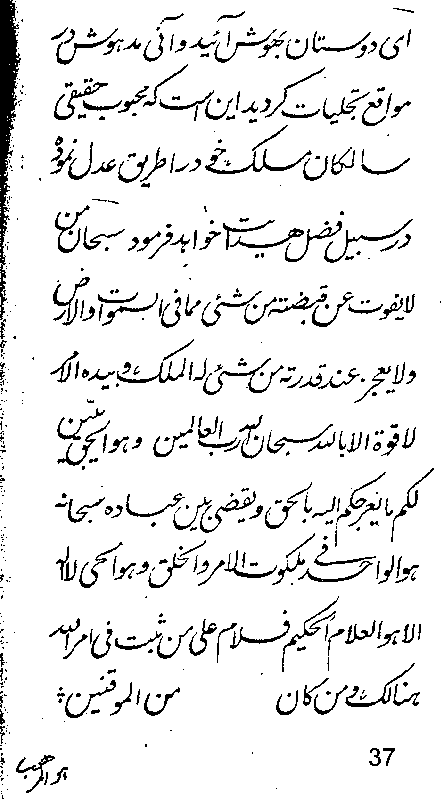 ای دوستان بهوش آئید و آنی مدهوش در
مواقع تجلیات گردید این است که محبوب حقیقی
سالکان مسلک خود را طریق عدل نموده
در سبیل فضل هدایت خواهد فرمود سبحان من
لا یفوت عن قبضته من شئی مما فی السموات و الارض
ولا یعجز عند قدرته من شئی له الملک و بیده الامر
لا قوة الا بالله سبحان الله رب العالمین و هو الحق یبین
لکم ما یعرجکم الیه بالحق و یقضی بین عباده سبحانه
هو الواحد فی ملکوت الامر و الخلق و هو الحی لا اله
الا هو العلام الحکیم فسلام علی من ثبت فی امر الله
هنالک و من کان من الموقنین
37